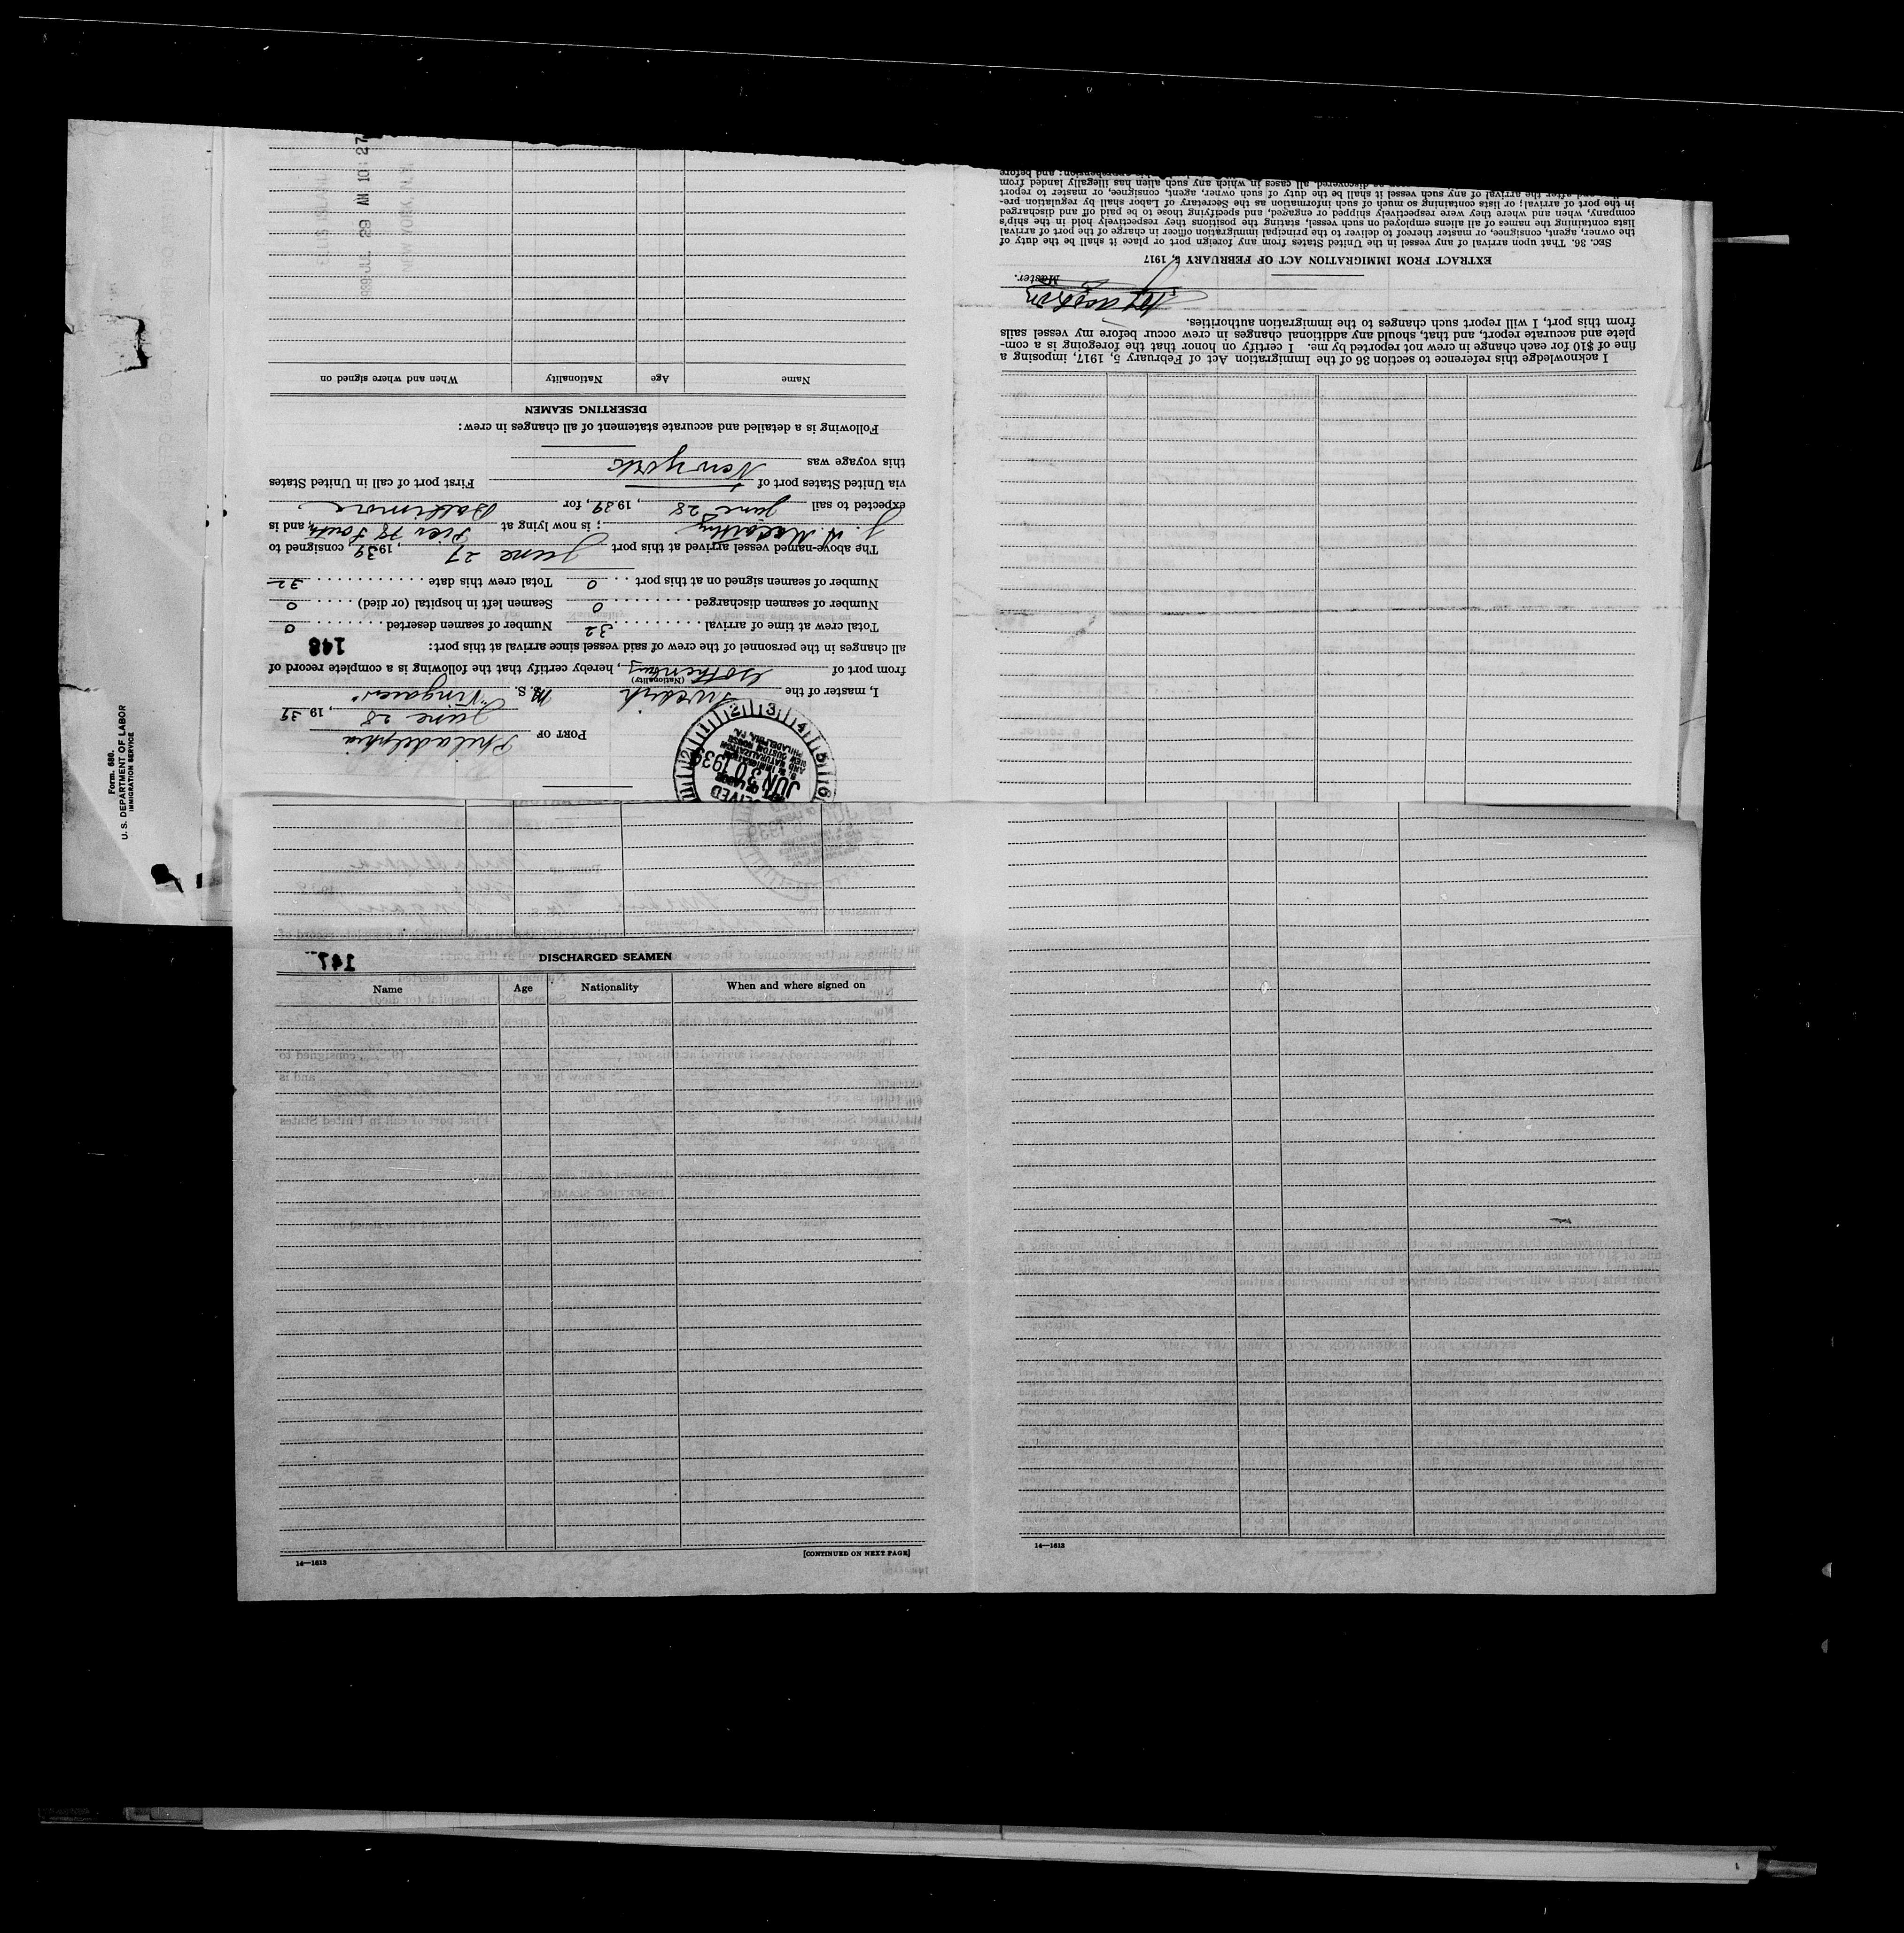 Form. 680.
U. S. DEPARTMENT OF LABOR
IMMIGRATION SERVICE
JUN 30 1939
PORT OF Philadelphia
June 28, 1939
I, master of the Swedish M. S. "Vingaren"
(Nationality)
from port of Gothenburg, hereby certify that the following is a complete record of
all changes in the personnel of the crew of said vessel since arrival at this port:
148
Total crew at time of arrival 32 Number of seamen deserted 0
Number of seamen discharged 0 Seamen left in hospital (or died) 0
Number of seamen signed on at this port 0 Total crew this date 32
The above-named vessel arrived at this port June 27, 1939, consigned to
J. A. McCarthy; is now lying at Pier 78 South, and is
expected to sail June 28, 1939, for Baltimore
via United States port of — First port of call in United States
this voyage was New York
Following is a detailed and accurate statement of all changes in crew:
DESERTING SEAMEN
Name Age Nationality When and where signed on
29 AM 10:27
I acknowledge this reference to section 36 of the Immigration Act of February 5, 1917, imposing a
fine of $10 for each change in crew not reported by me. I certify on honor that the foregoing is a com-
plete and accurate report, and that, should any additional changes in crew occur before my vessel sails
from this port, I will report such changes to the immigration authorities.
Master.
EXTRACT FROM IMMIGRATION ACT OF FEBRUARY 5, 1917
SEC. 36. That upon arrival of any vessel in the United States from any foreign port or place it shall be the duty of
the owner, agent, consignee, or master thereof to deliver to the principal immigration officer in charge of the port of arrival
lists containing the names of all aliens employed on such vessel, stating the positions they respectively hold in the ship's
company, when and where they were respectively shipped or engaged, and specifying those to be paid off and discharged
in the port of arrival; or lists containing so much of such information as the Secretary of Labor shall by regulation pre-
after the arrival of any such vessel it shall be the duty of such owner, agent, consignee, or master to report
discovered, all cases in which any such alien has illegally landed from
and before
147
DISCHARGED SEAMEN
Name Age Nationality When and where signed on
14—1613
[CONTINUED ON NEXT PAGE]
14—1613